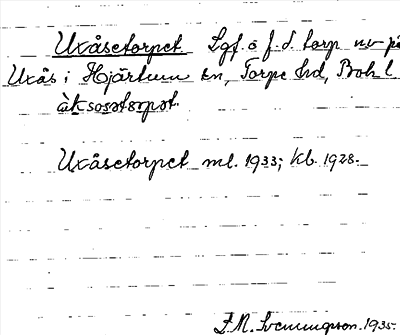 Uxåsetorpet Lgf. o f. d. torp nv på
Uxås i Hjärtum sn, Torpe hd, Boh l
àksosətorpət.
Uxåsetorpet ml. 1933; kb. 1928.
F. M. Svenungsson. 1935.